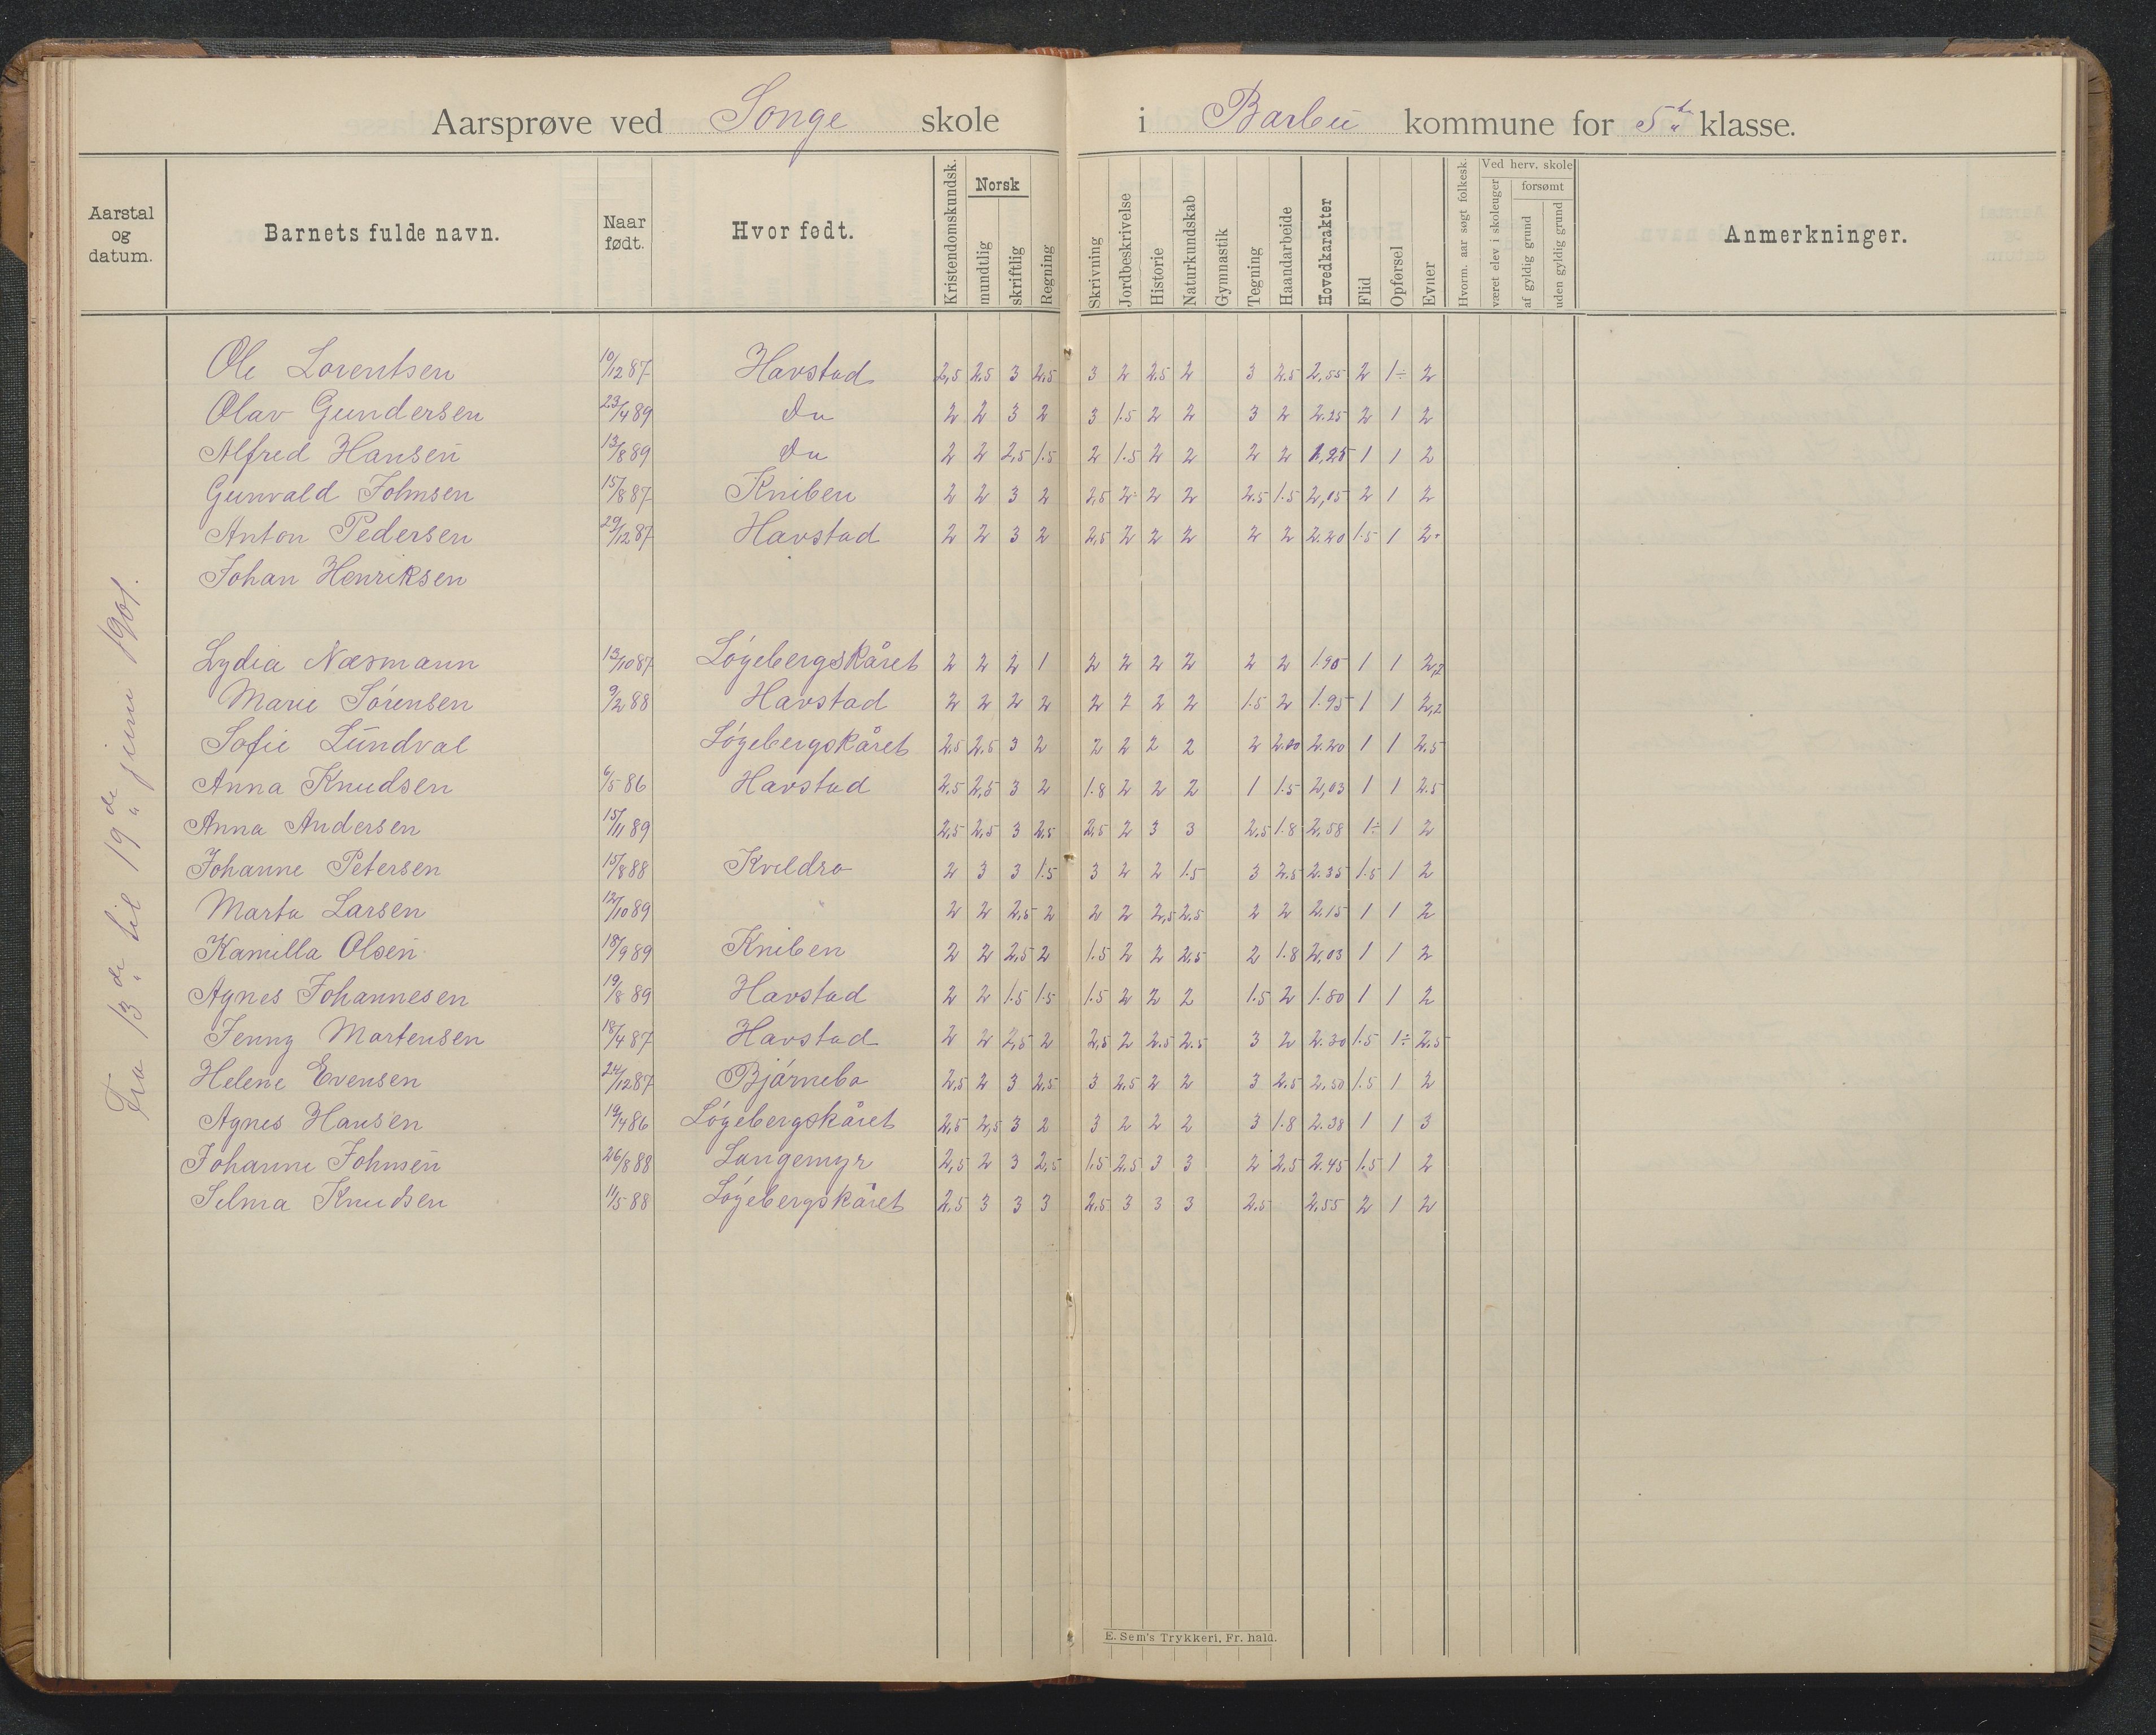 Aarsprøve ved Songe skole i Barbu kommune for 5te klasse.
Aarstal og datum. Barnets fulde navn. Naar født. Hvor født. Kristendomskundsk. Norsk mundtlig skriftlig Regning Skrivning Jordbeskrivelse Historie Naturkundskab Gymnastik Tegning Haandarbeide Hovedkarakter Flid Opførsel Evner Hvorm. aar søgt folkesk. Ved herv. skole været elev i skoleuger forsømt af gyldig grund uden gyldig grund Anmerkninger.
Fra 13de til 19de juni 1901.
Ole Lorentsen 10/12 87 Havstad 2,5 2.5 3 2,5 3 2 2.5 2 3 2.5 2,55 2 1÷ 2
Olav Gundersen 23/4 89 Do 2 2 3 2 3 1.5 2 2 3 2 2.25 2 1 2
Alfred Hansen 13/8 89 Do 2 2 2,5 1.5 2 1.5 2 2 2 2 1,25 1 1 2
Gunvald Johnsen 15/8 87 Kniben 2 2 3 2 2,5 2 2 2 2.5 1.5 2,05 2 1 2
Anton Pedersen 29/12 87 Havstad 2 2 3 2 2,5 2 2 2 2 2 2.20 1.5 1 2
Johan Henriksen
Lydia Næsmann 13/10 87 Løgebergskåret 2 2 2 1 2 2 2 2 2 2 1.90 1 1 2,2
Marie Sørensen 9/2 88 Havstad 2 2 2 2 2 2 2 2 1.5 2 1.95 1 1 2,2
Sofie Lundval Løgebergskåret 2.5 2.5 3 2 2 2 2 2 2 2.00 2.20 1 1 2.5
Anna Knudsen 6/5 86 Havstad 2.5 2,5 3 2 1.8 2 2 2 1 1.5 2,03 1 1 2.5
Anna Andersen 15/11 89 2,5 2,5 3 2.5 2,5 2 3 3 2.5 1.8 2,58 1÷ 1 2
Johanne Petersen 15/8 88 Kvildro 2 3 3 1.5 3 2 2 1.5 3 2.5 2.35 1.5 1 2
Marta Larsen 12/10 89 " 2 2 2,5 2 2 2 2,5 2.5 2 2 2.15 1 1 2
Kamilla Olsen 18/9 89 Kniben 2 2 2,5 2 1.5 2 2 2,5 2 1.8 2,03 1 1 2
Agnes Johannesen 19/8 89 Havstad 2 2 1.5 1.5 1.5 2 2 2 1.5 2 1.80 1 1 2
Jenny Martensen 18/4 87 Havstad 2 2 2,5 2 2,5 2 2.5 2.5 3 2 2.30 1.5 1÷ 2.5
Helene Evensen 24/12 87 Bjørnebo 2,5 2 3 2,5 3 2,5 2 2 3 2.5 2,50 1.5 1 2
Agnes Hansen 19/4 86 Løgebergskåret 2,5 2,5 3 2 3 2 2 2 3 1.8 2.38 1 1 3
Johanne Johnsen 26/8 88 Langemyr 2,5 2 3 2,5 1,5 2,5 3 3 2 2,5 2.45 1.5 1 2
Selma Knudsen 11/5 88 Løgebergskåret 2.5 3 3 3 2,5 3 3 3 2.5 2,55 2 1 2
E. Sem's Trykkeri, Fr. hald.